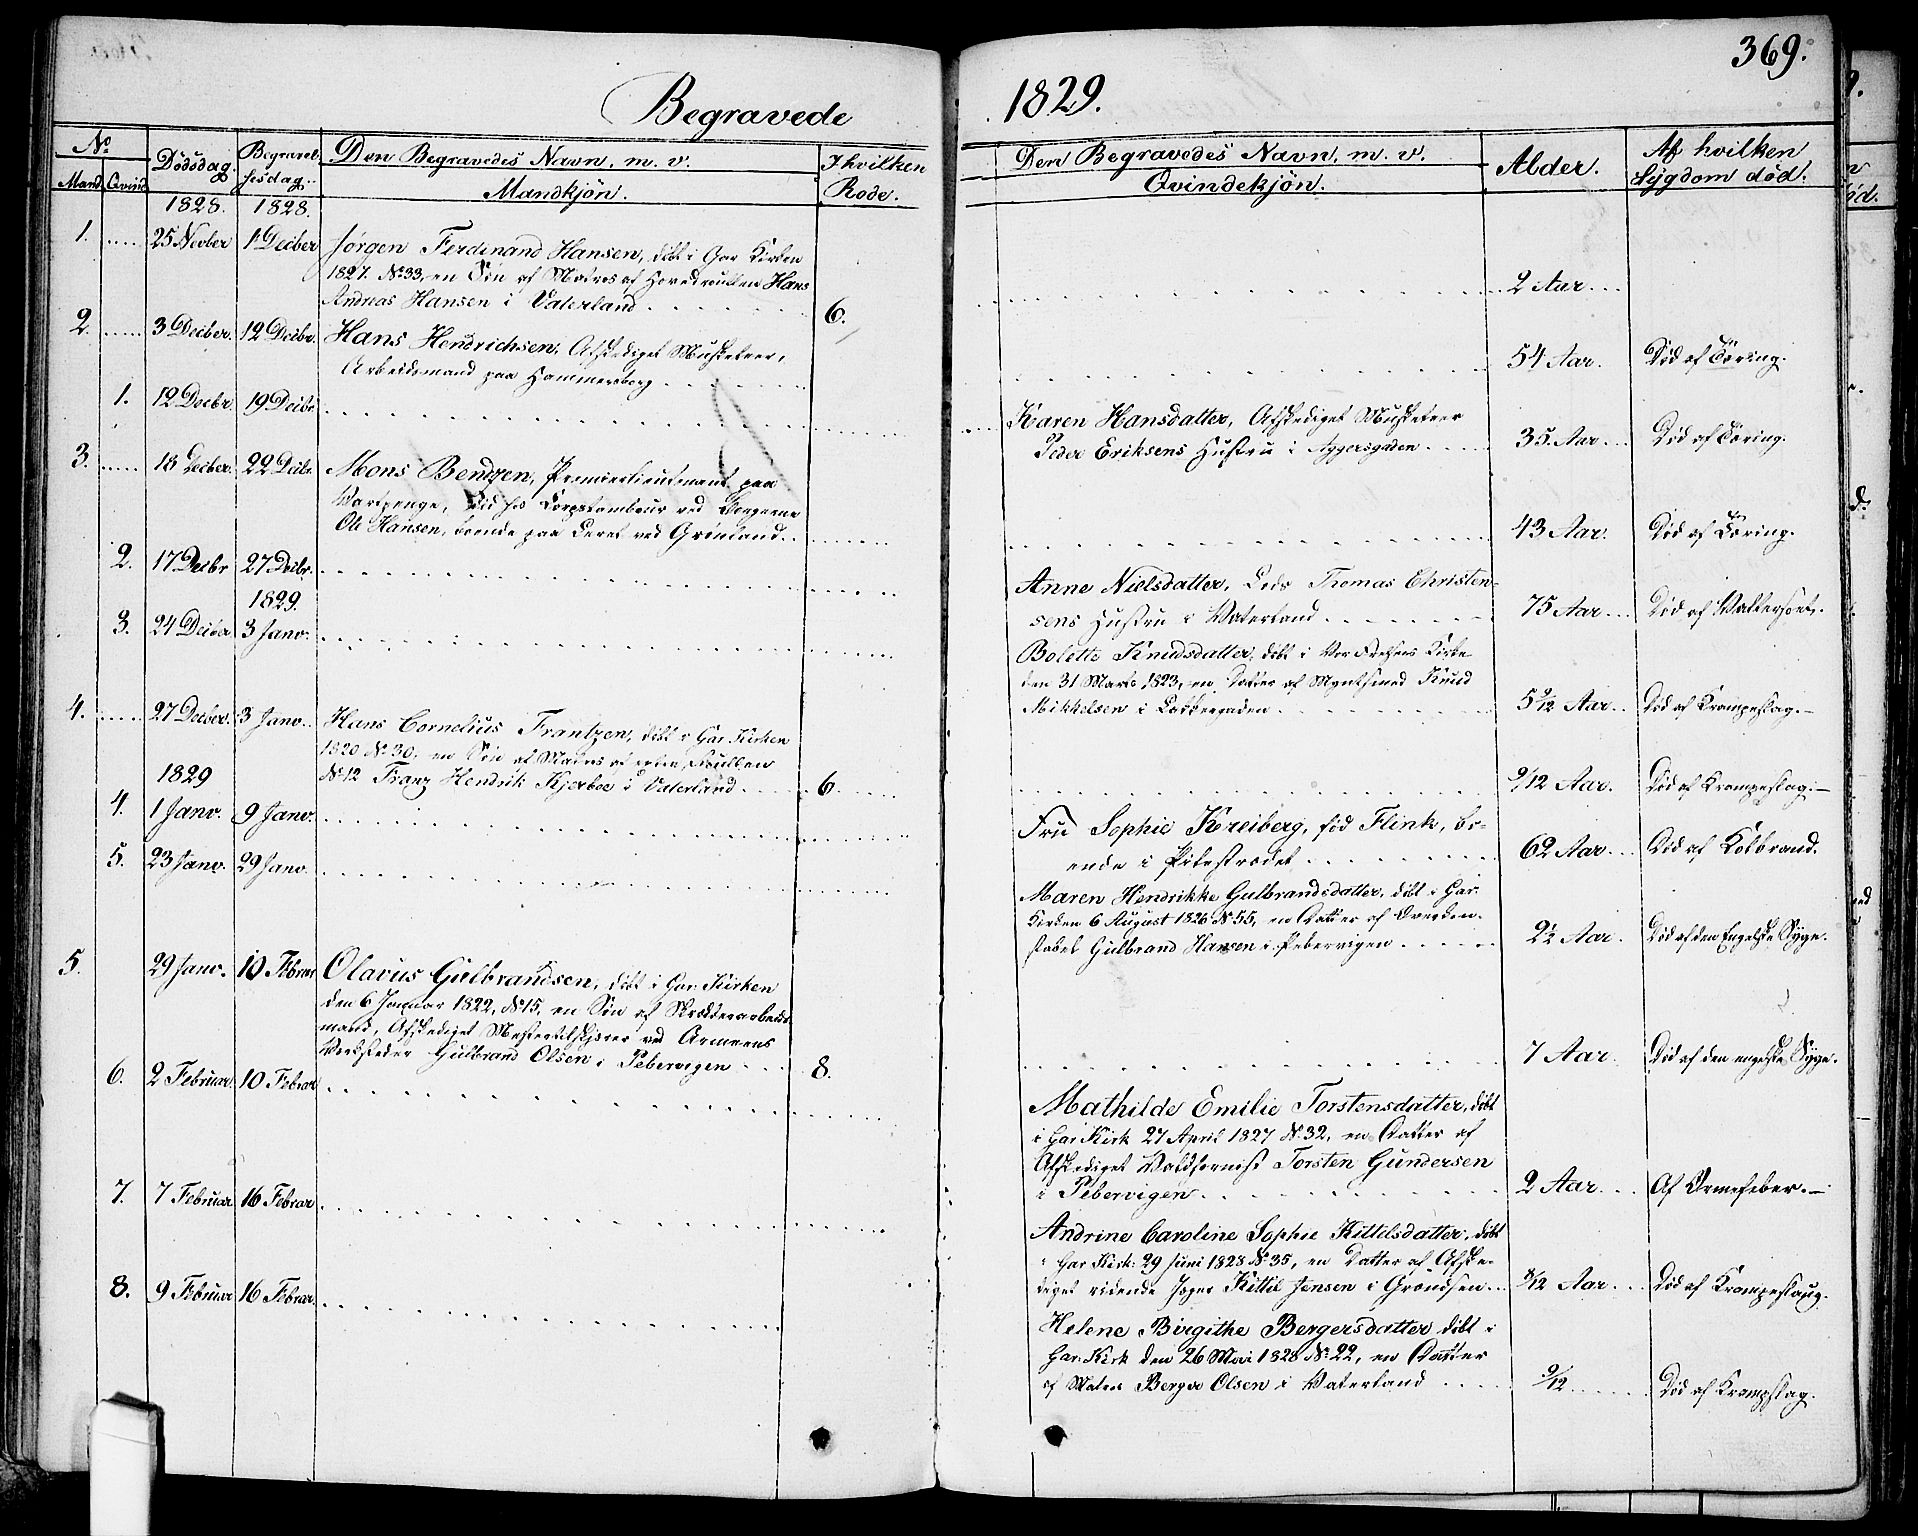 369.
Begravede
1829.
No
Mand. Qvind.
Dödsdag.
Begravel-
sesdag.
Den Begravedes Navn, m. v.
Mandkjön.
I hvilken
Rode.
Den Begravedes Navn, m. v.
Qvindekjön.
Alder.
Af hvilken
Sygdom död.
1828. 1828.
1. 25 Novber 1 Decber Jørgen Ferdinand Hansen, döbt i Gar Kirken
1827. No 33, en Sön af Matros af Hovedroullen Hans
Andreas Hansen i Vaterland 6. 2 Aar
2. 3 Decber. 12 Decbr. Hans Hendrichsen, Afskediget Musketeer,
Arbeidsmand paa Hammersborg 54 Aar. Död af Tæring.
1. 12 Decbr. 19 Decbr Karen Hansdatter, Afskediget Musketeer
Peder Eriksens Hustru i Aggersgaden 35 Aar. Död af Tæring.
3. 18 Decber. 22 Decbr. Mons Bentzen, Premierlieutnant paa
Vartpenge, Corpstambour ved
Ole Hansen, boende paa Leret ved Grönland 43 Aar. Död af Tæring.
2. 17 Decbr 27 Decbr. Anne Nielsdatter, Lods Thomas Christen-
sens Hustru i Vaterland 75 Aar. Död af Vattersoet.
1829.
3. 24 Decber 3 Janv. Bolette Knudsdatter, döbt i Vor Frelsers Kirke
den 31 Marts 1823, en Datter af Myntsmed Knud
Mikkelsen i 5 9/12 Aar. Död af Krampeslag.
4. 27 Decber. 3 Janv. Hans Cornelius Frantzen, döbt i Gar. Kirken
1820 No 30, en Sön af Matros af extra Roullen
No 12 Franz Hendrik Kjerboe i Vaterland 6. 9/12 Aar. Död af Krampeslag.
1829
4. 1 Janv. 9 Janv. Fru Sophie Kreiberg, föd Flink, bo-
ende i Pilestrædet 62 Aar. Död af Kolbrand.
5. 23 Janv. 29 Janv. Maren Hendrikke Gulbrandsdatter, döbt i Gar.
Kirken 6 August 1826 No 55, en Datter af
Gulbrand Hansen i Pebervigen 2½ Aar. Död af den Engelske Syge.
5. 29 Janv. 10 Febrar Olavus Gulbrandsen, döbt i Gar. Kirken
den 6 Januar 1822, No 15, en Sön af Skrædderarbeids-
mand, Afskediget ved Armeens
Verksteder Gulbrand Olsen i Pebervigen 8. 7 Aar. Död af den engelske Syge.
6. 2 Februar. 10 Febrar Mathilde Emilie Torstensdatter, döbt
i Gar. Kirk 27 April 1827 No. 32, en Datter af
Afskediget Valdhornist Torsten Gundersen
i Pebervigen 2 Aar. Af Ormefeber.
7. 7 Februar 16 Febrar Andrine Caroline Sophie Kittelsdatter, döbt
i Gar Kirk: 29 Juni 1828 No 35, en Datter af Afske-
diget ridende Jæger Kittil Jensen i Gröndsen 8/12 Aar Död af Krampeslaug.
8. 9 Februar 16 Febrar. Helene Birgithe Bergersdatter döbt i
Gar: Kirk den 26 Mai 1828 No 22, en Datter
af Matros Berger Olsen i Vaterland 9/12 Död af Krampslag.